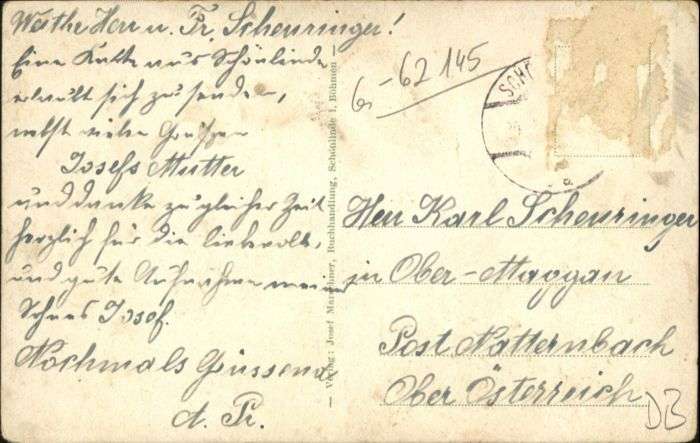 Werthe Herr u. Fr. Scheuringer!
Eine Karte aus Schönlinde
erlaubt sich zu senden,
nebst vielen Grüßen
Josefs Mutter
und danke zu gleicher Zeit
herzlich für die liebevolle,
und gute Aufnahme meines
Sohnes Josef.
Nochmals Grüssend
d. Pr.
Verlag: Josef Marschner, Buchhandlung, Schönlinde i. Böhmen
6-62 145
SCHÖ
Herr Karl Scheuringer
in Ober-Maggau
Post Natternbach
Ober Österreich
DB